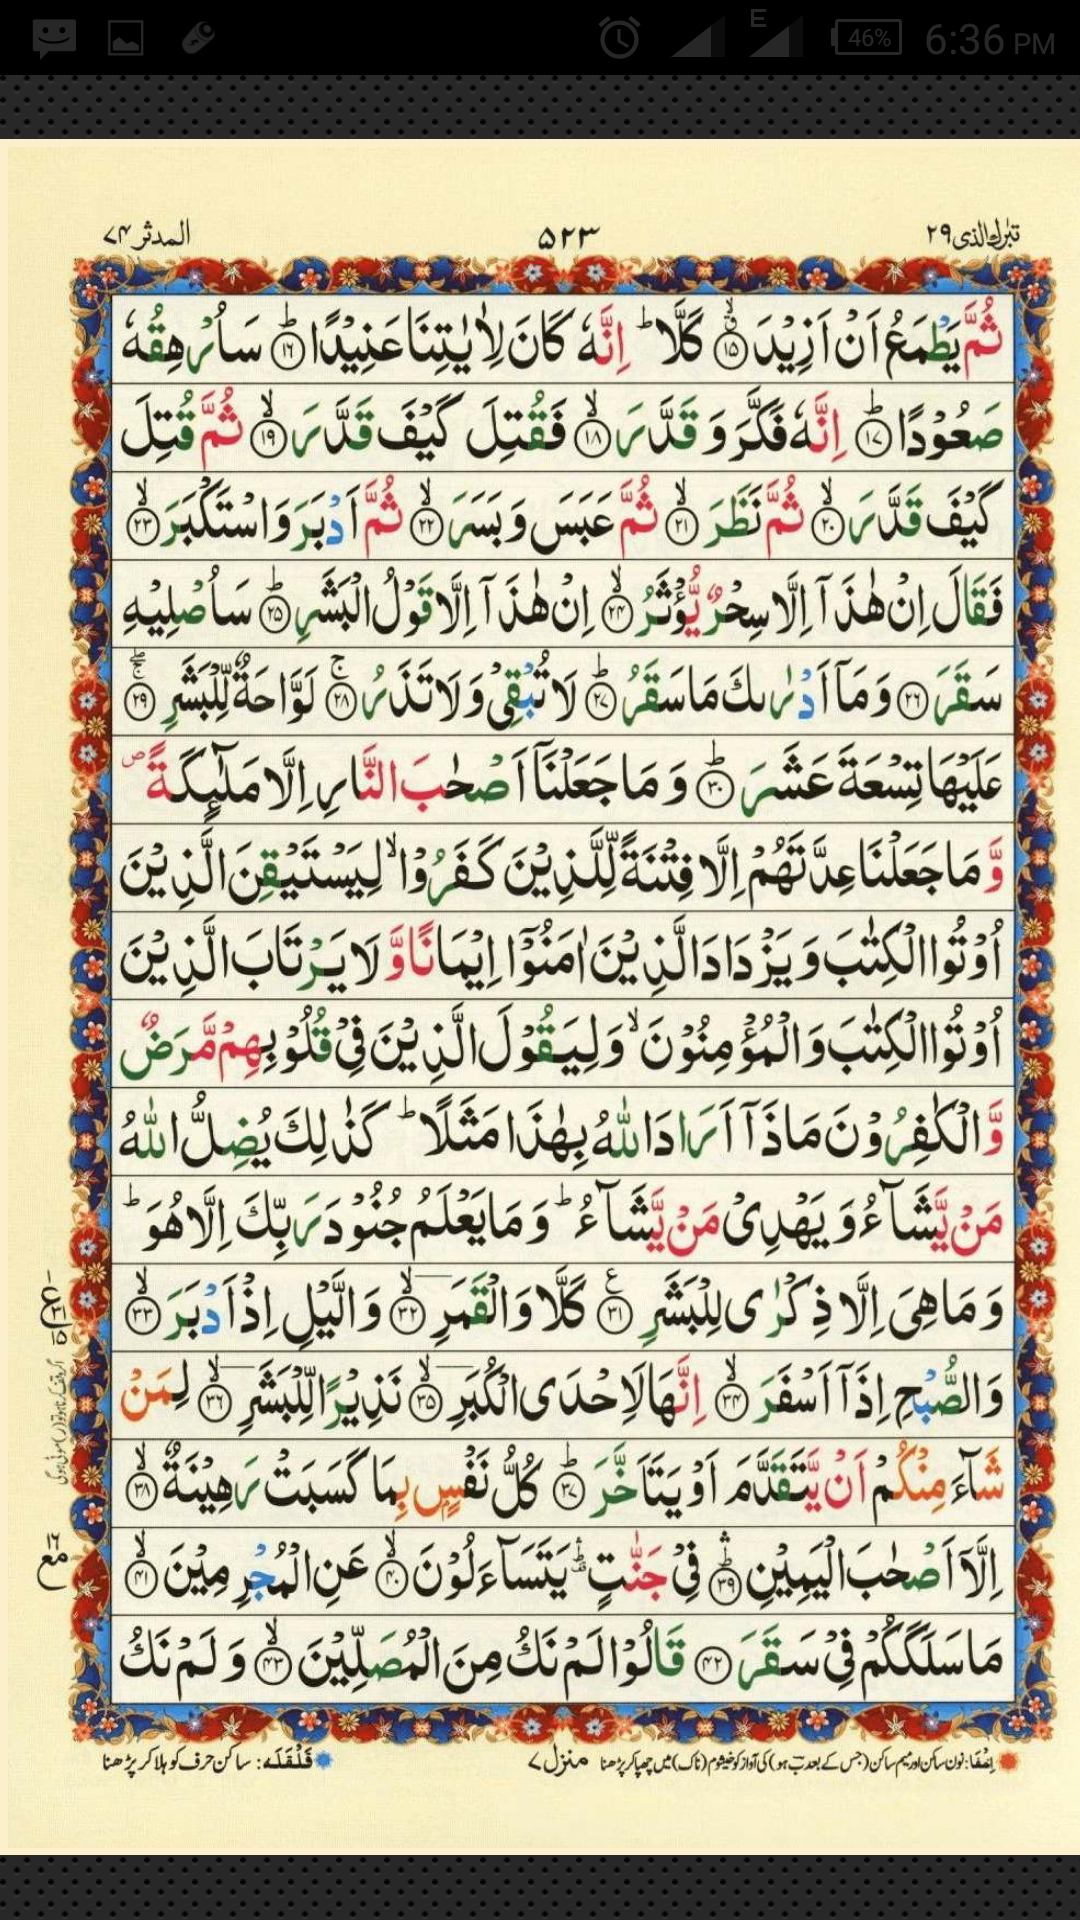 46% 6:36 PM
تبٰرك الذی ٢٩ ٥٢٣ المدثر ٧٤
ثُمَّ یَطْمَعُ اَنْ اَزِیْدَ ۙ﴿۱۵﴾ كَلَّا ؕ اِنَّهٗ كَانَ لِاٰیٰتِنَا عَنِیْدًا ﴿ؕ۱۶﴾ سَاُرْهِقُهٗ
صَعُوْدًا ﴿ؕ۱۷﴾ اِنَّهٗ فَكَّرَ وَ قَدَّرَ ﴿ۙ۱۸﴾ فَقُتِلَ كَیْفَ قَدَّرَ ﴿ۙ۱۹﴾ ثُمَّ قُتِلَ
كَیْفَ قَدَّرَ ﴿ۙ۲۰﴾ ثُمَّ نَظَرَ ﴿ۙ۲۱﴾ ثُمَّ عَبَسَ وَ بَسَرَ ﴿ۙ۲۲﴾ ثُمَّ اَدْبَرَ وَ اسْتَكْبَرَ ﴿ۙ۲۳﴾
فَقَالَ اِنْ هٰذَاۤ اِلَّا سِحْرٌ یُّؤْثَرُ ﴿ۙ۲۴﴾ اِنْ هٰذَاۤ اِلَّا قَوْلُ الْبَشَرِ ﴿ؕ۲۵﴾ سَاُصْلِیْهِ
سَقَرَ ﴿۲۶﴾ وَ مَاۤ اَدْرٰىكَ مَا سَقَرُ ﴿ؕ۲۷﴾ لَا تُبْقِیْ وَ لَا تَذَرُ ﴿ۚ۲۸﴾ لَوَّاحَةٌ لِّلْبَشَرِ ﴿ۚۖ۲۹﴾
عَلَیْهَا تِسْعَةَ عَشَرَ ﴿ؕ۳۰﴾ وَ مَا جَعَلْنَاۤ اَصْحٰبَ النَّارِ اِلَّا مَلٰٓىِٕكَةً ۪
وَّ مَا جَعَلْنَا عِدَّتَهُمْ اِلَّا فِتْنَةً لِّلَّذِیْنَ كَفَرُوْا ۙ لِیَسْتَیْقِنَ الَّذِیْنَ
اُوْتُوا الْكِتٰبَ وَ یَزْدَادَ الَّذِیْنَ اٰمَنُوْۤا اِیْمَانًا وَّ لَا یَرْتَابَ الَّذِیْنَ
اُوْتُوا الْكِتٰبَ وَ الْمُؤْمِنُوْنَ ۙ وَ لِیَقُوْلَ الَّذِیْنَ فِیْ قُلُوْبِهِمْ مَّرَضٌ
وَّ الْكٰفِرُوْنَ مَاذَاۤ اَرَادَ اللّٰهُ بِهٰذَا مَثَلًا ؕ كَذٰلِكَ یُضِلُّ اللّٰهُ
مَنْ یَّشَآءُ وَ یَهْدِیْ مَنْ یَّشَآءُ ؕ وَ مَا یَعْلَمُ جُنُوْدَ رَبِّكَ اِلَّا هُوَ ؕ
وَ مَا هِیَ اِلَّا ذِكْرٰی لِلْبَشَرِ ﴿۳۱﴾ كَلَّا وَ الْقَمَرِ ﴿ۙ۳۲﴾ وَ الَّیْلِ اِذْ اَدْبَرَ ﴿ۙ۳۳﴾
وَ الصُّبْحِ اِذَاۤ اَسْفَرَ ﴿ۙ۳۴﴾ اِنَّهَا لَاِحْدَی الْكُبَرِ ﴿ۙ۳۵﴾ نَذِیْرًا لِّلْبَشَرِ ﴿ۙ۳۶﴾ لِمَنْ
شَآءَ مِنْكُمْ اَنْ یَّتَقَدَّمَ اَوْ یَتَاَخَّرَ ﴿ؕ۳۷﴾ كُلُّ نَفْسٍۭ بِمَا كَسَبَتْ رَهِیْنَةٌ ﴿ۙ۳۸﴾
اِلَّاۤ اَصْحٰبَ الْیَمِیْنِ ﴿ؕۛ۳۹﴾ فِیْ جَنّٰتٍ ۛؕ یَتَسَآءَلُوْنَ ﴿ۙ۴۰﴾ عَنِ الْمُجْرِمِیْنَ ﴿ۙ۴۱﴾
مَا سَلَكَكُمْ فِیْ سَقَرَ ﴿۴۲﴾ قَالُوْا لَمْ نَكُ مِنَ الْمُصَلِّیْنَ ﴿ۙ۴۳﴾ وَ لَمْ نَكُ
اِخفَا: نون ساکن اور میم ساکن (جس کے بعد ب ہو) کی آواز کو خیشوم (ناک) میں چھپا کر پڑھنا منزل ۷ قَلْقَلَه: ساکن حرف کو ہلا کر پڑھنا